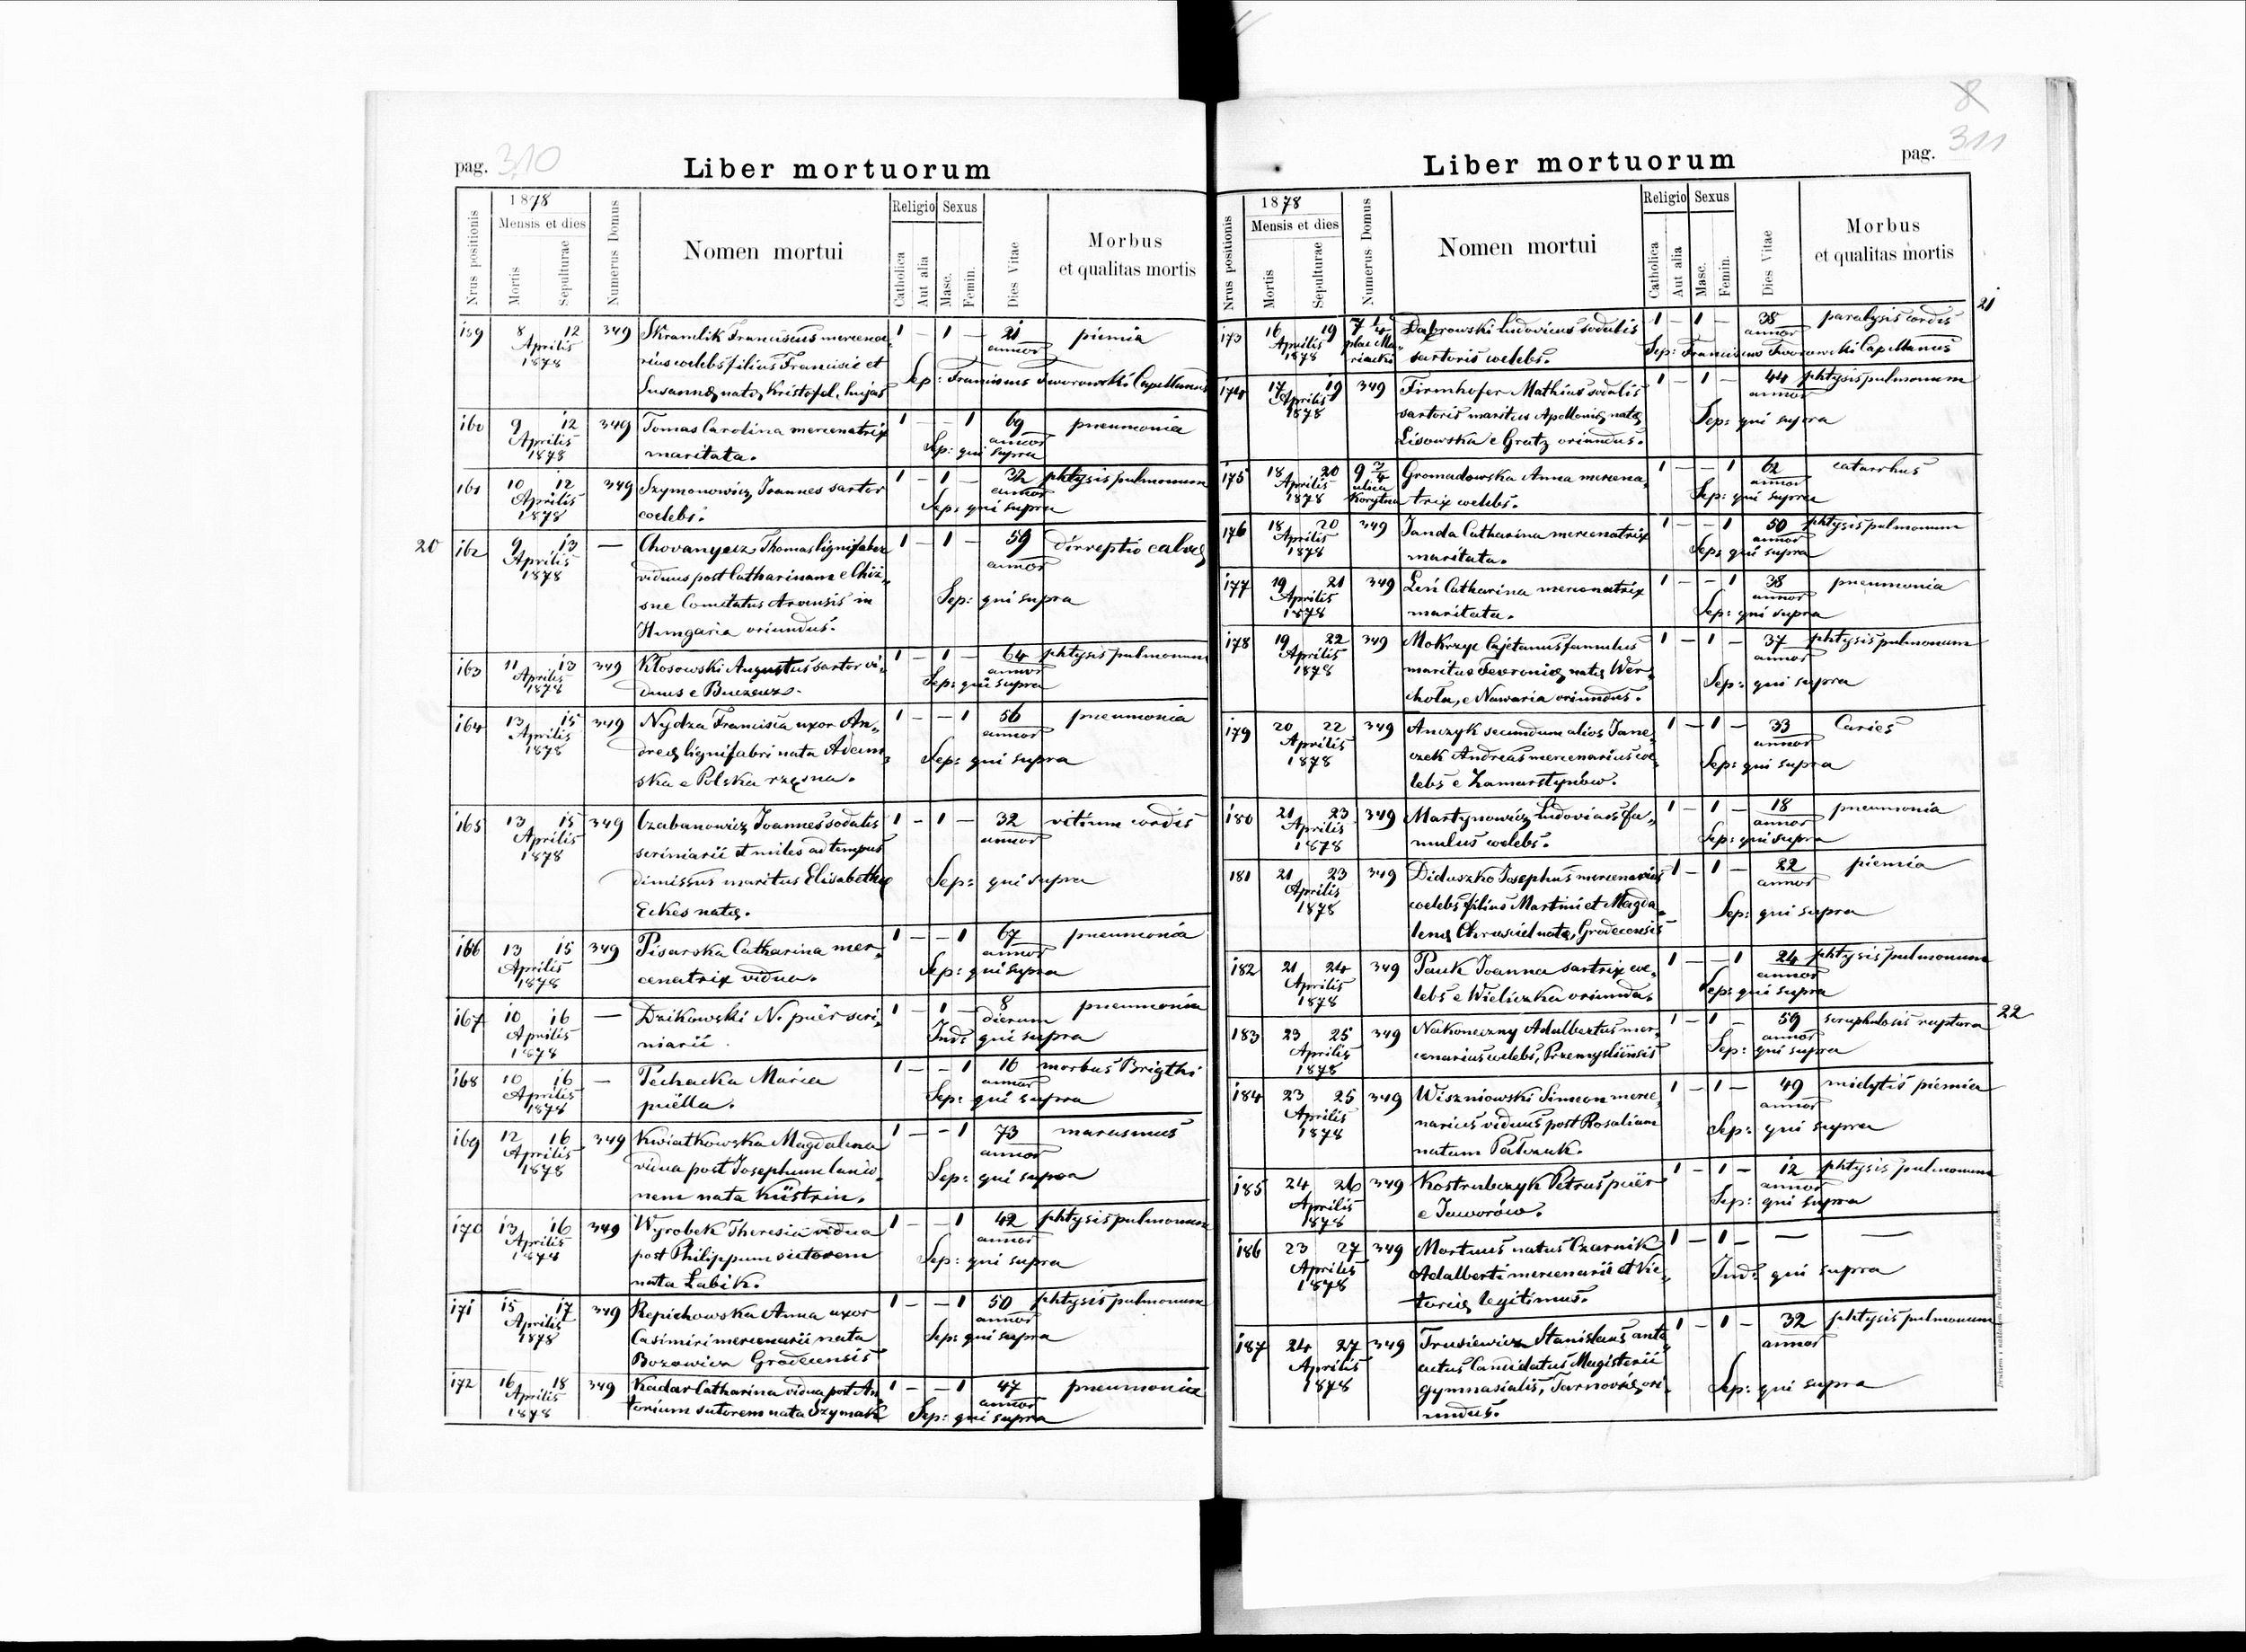 pag. 310
Liber mortuorum
Nrus positionis
1878
Mensis et dies
Mortis
Sepulturae
Numerus Domus
Nomen mortui
Religio
Catholica
Aut alia
Sexus
Masc.
Femin.
Dies Vitae
Morbus
et qualitas mortis
159 8 12 349 Skramlik Franciscus mercena, 1 – 1 – 21 piemia
Aprilis rius coelebs filius Francisci et annor
1878 Susannę natę Kristofel, hujas Sep: Franciscus Tworowski Capellanus
160 9 12 349 Tomas Carolina mercenatrix 1 – – 1 69 pneumonia
Aprilis annor
1878 maritata. Sep: qui supra
161 10 12 349 Szymonowicz Joannes sartor 1 – 1 – 32 phtysis pulmonum
Aprilis annor
1878 coelebs. Sep: qui supra
20 162 9 13 — Chovanyecz Thomas lignifaber 1 – 1 – 59 dirreptio calvę
Aprilis viduus post Catharinam e Chiz, annor
1878 sne Comitatus Arvensis in Sep: qui supra
Hungaria oriundus.
163 11 13 349 Kłosowski Augustus sartor vi, 1 – 1 – 64 phtysis pulmonum
Aprilis annor
1878 duus e Buczacz. Sep: qui supra
164 13 15 349 Nydza Francisca uxor An, 1 – – 1 56 pneumonia
Aprilis dreę lignifabri nata Adam, annor
1878 ska e Polska rzęsna. Sep: qui supra
165 13 15 349 Czabanowicz Joannes sodalis 1 – 1 – 32 vitium cordis
Aprilis scriniarii et miles ad tempus annor
1878 dimissus maritus Elisabethę Sep: qui supra
Eckes natę.
166 13 15 349 Pisarska Catharina mer, 1 – – 1 67 pneumonia
Aprilis annor
1878 cenatrix vidua. Sep: qui supra
167 10 16 — Dzikowski N. puer scri, 1 – 1 – 8 pneumonia
Aprilis dierum
1878 niarii. Ind: qui supra
168 10 16 — Pechacka Maria 1 – – 1 16 morbus Brigthi
Aprilis annor
1878 puella. Sep: qui supra
169 12 16 349 Kwiatkowska Magdalena 1 – – 1 73 marasmus
Aprilis vidua post Josephum lanio, annor
1878 nem nata Küstrin. Sep: qui supra
170 13 16 349 Wyrobek Theresia vidua 1 – – 1 42 phtysis pulmonum
Aprilis post Philippum sutorem annor
1878 nata Łabik. Sep: qui supra
171 15 17 349 Repichowska Anna uxor 1 – – 1 50 phtysis pulmonum
Aprilis Casimiri mercenarii nata annor
1878 Bozowicz Grodecensis Sep: qui supra
172 16 18 349 Kadar Catharina vidua post An, 1 – – 1 47 pneumonia
Aprilis annor
1878 tonium sutorem nata Szymak Sep: qui supra
8
pag. 311
Liber mortuorum
Nrus positionis
1878
Mensis et dies
Mortis
Sepulturae
Numerus Domus
Nomen mortui
Religio
Catholica
Aut alia
Sexus
Masc.
Femin.
Dies Vitae
Morbus
et qualitas mortis
21
173 16 19 7 1/4 Dąbrowski Ludovicus sodalis 1 – 1 – 38 paralysis cordis
Aprilis plac Ma, annor
1878 riacki sartoris coelebs. Sep: Franciscus Tworowski Capellanus
174 17 19 349 Firmhofer Mathias sodalis 1 – 1 – 44 phtysis pulmonum
Aprilis sartoris maritus Apollonię natę annor
1878 Lisowska e Gratz oriundus. Sep: qui supra
175 18 20 9 3/4 Gromadowska Anna mercena, 1 – – 1 62 catarrhus
Aprilis ulica annor
1878 Korytna trix coelebs. Sep: qui supra
176 18 20 349 Janda Catharina mercenatrix 1 – – 1 50 phtysis pulmonum
Aprilis annor
1878 maritata. Sep: qui supra
177 19 21 349 Leń Catharina mercenatrix 1 – – 1 38 pneumonia
Aprilis annor
1878 maritata. Sep: qui supra
178 19 22 349 Mokrzyc Cajetanus famulus 1 – 1 – 37 phtysis pulmonum
Aprilis maritus Fevronię natę Wer, annor
1878 chola, e Nawaria oriundus. Sep: qui supra
179 20 22 349 Anczyk secundum alios Jane, 1 – 1 – 33 Caries
Aprilis czek Andreas mercenarius coe, annor
1878 lebs e Zamarstynów. Sep: qui supra
180 21 23 349 Martynowicz Ludovicus fa, 1 – 1 – 18 pneumonia
Aprilis annor
1878 mulus coelebs. Sep: qui supra
181 21 23 349 Diduszko Josephus mercenarius 1 – 1 – 22 piemia
Aprilis coelebs filius Martini et Magda, annor
1878 lenę Chruściel natę, Grodecensis Sep: qui supra
182 21 24 349 Pauk Joanna sartrix coe, 1 – – 1 24 phtysis pulmonum
Aprilis annor
1878 lebs e Wieliczka oriunda. Sep: qui supra
22
183 23 25 349 Nakoneczny Adalbertus mer, 1 – 1 – 59 scrophulosis ruptura
Aprilis annor
1878 cenarius coelebs, Przemysliensis Sep: qui supra
184 23 25 349 Wiszniowski Simeon merce, 1 – 1 – 49 mielytis piemia
Aprilis narius viduus post Rosaliam annor
1878 natam Patczuk. Sep: qui supra
185 24 26 349 Kostrubczyk Petrus puer 1 – 1 – 12 phtysis pulmonum
Aprilis annor
1878 e Jaworów. Sep: qui supra
186 23 27 349 Mortuus natus Czarnik 1 – 1 – — —
Aprilis Adalberti mercenarii et Vic,
1878 torię legitimus. Ind: qui supra
187 24 27 349 Trusiewicz Stanislaus ante 1 – 1 – 32 phtysis pulmonum
Aprilis actus Candidatus Magisterii annor
1878 gymnasialis, Tarnovię ori, Sep: qui supra
undus.